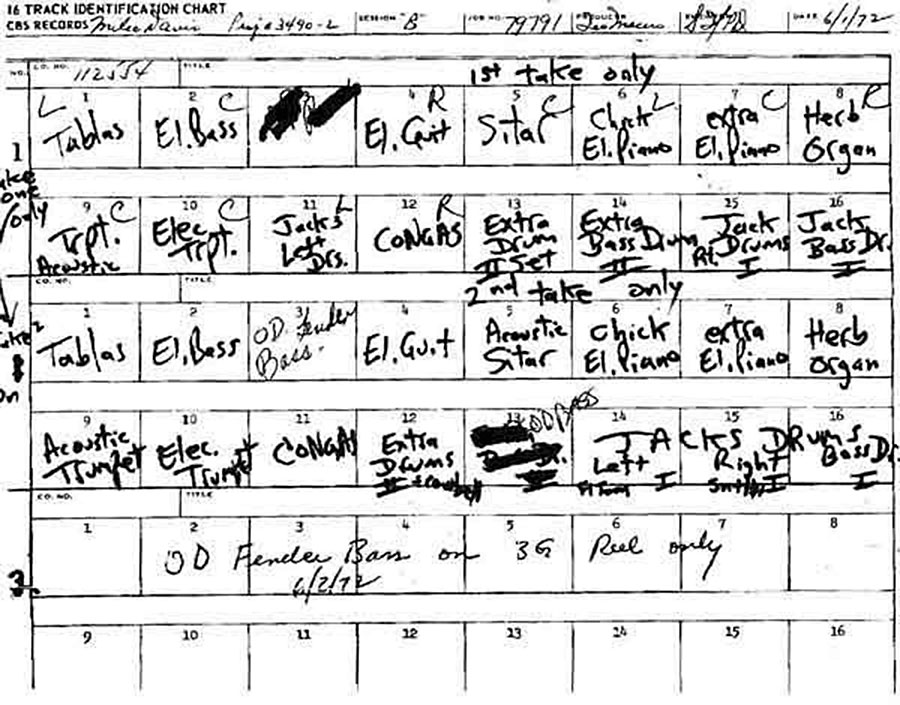 16 TRACK IDENTIFICATION CHART
CBS RECORDS Miles Davis Proj# 3490-2 SESSION "B" JOB NO. 79791 PRODUCER DATE 6/1/72
NO. CO. NO. 112554 TITLE 1st take only
L 1 2 C 4 R 5 C 6 L 7 C 8 R
1 Tablas El. Bass El. Guit Sitar Chick El. Piano extra El. Piano Herb Organ
take one only
9 C 10 C 11 L 12 R 13 14 15 16
Trpt. Acoustic Elec Trpt. Jacks Left Drs. CONGAS Extra Drum II Set Extra Bass Drum II Jack Rt. Drums I Jacks Bass Dr. I
CO. NO. TITLE 2nd take only
1 2 3 4 5 6 7 8
Tablas El. Bass OD Fender Bass. El. Guit Acoustic Sitar Chick El. Piano extra El. Piano Herb Organ
9 10 11 12 13 OD BASS 14 15 16
Acoustic Trumpet Elec. Trumpet CONGAS Extra Drums II JACKS DRums
Left I Right I Bass Dr. I
CO. NO. TITLE
1 2 3 4 5 6 7 8
OD Fender Bass on 3G Reel only
6/2/72
3
9 10 11 12 13 14 15 16